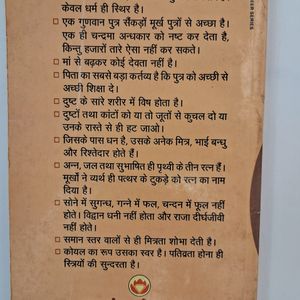 केवल धर्म ही स्थिर है।
एक गुणवान पुत्र सैंकड़ों मूर्ख पुत्रों से अच्छा है।
एक ही चन्दमा अन्धकार को नष्ट कर देता है,
किन्तु हजारों तारे ऐसा नहीं कर सकते।
मां से बढ़कर कोई देवता नहीं है।
पिता का सबसे बड़ा कर्तव्य है कि पुत्र को अच्छी से
अच्छी शिक्षा दे।
दुष्ट के सारे शरीर में विष होता है।
दुष्टों तथा कांटों को या तो जूतों से कुचल दो या
उनके रास्ते से ही हट जाओ।
जिसके पास धन है, उसके अनेक मित्र, भाई बन्धु
और रिश्तेदार होते हैं।
अन्न, जल तथा सुभाषित ही पृथ्वी के तीन रत्न हैं।
मूर्खों ने व्यर्थ ही पत्थर के टुकड़े को रत्न का नाम
दिया है।
सोने में सुगन्ध, गन्ने में फल, चन्दन में फूल नहीं
होते। विद्वान धनी नहीं होता और राजा दीर्घजीवी
नहीं होते।
समान स्तर वालों से ही मित्रता शोभा देती है।
कोयल का रूप उसका स्वर है। पतिव्रता होना ही
स्त्रियों की सुन्दरता है।